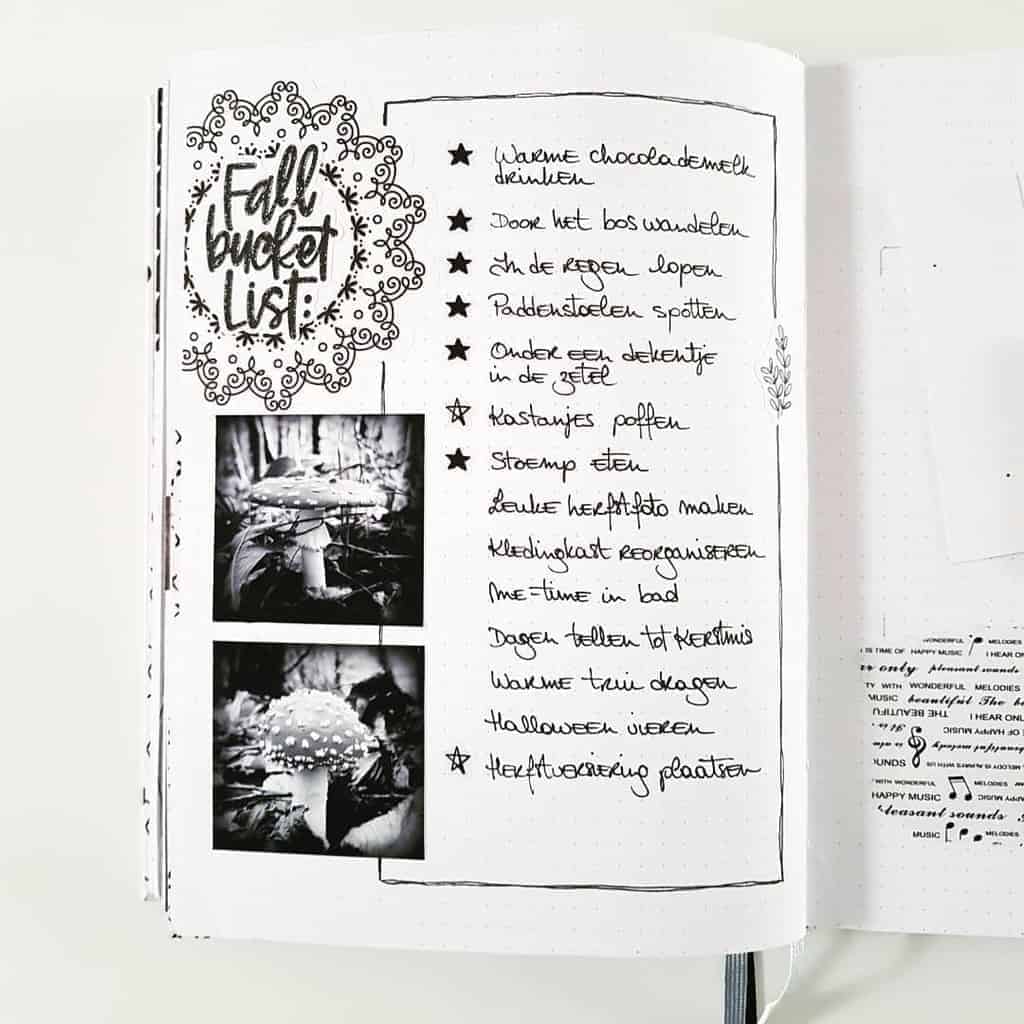 Fall
bucket
List:
Warme chocolademelk
drinken
Door het bos wandelen
In de regen lopen
Paddenstoelen spotten
Onder een dekentje
in de zetel
Kastanjes poffen
Stoemp eten
Leuke herfstfoto maken
Kledingkast reorganiseren
Me-time in bad
Dagen tellen tot Kerstmis
Warme trui dragen
Halloween vieren
Herfstversiering plaatsen
WONDERFUL MELODIES
IS TIME OF HAPPY MUSIC I HEAR ON
only pleasant sounds
TY WITH WONDERFUL MELODIES
MUSIC beautiful The
THE BEAUTIFU I HEAR ONL
OF HAPPY MUSIC
It is
beautiful melody
OUNDS MELODY IS ALWAYS WITH US
WITH WONDERFUL MELODIES
HAPPY MUSIC HAPPY MUSIC
Pleasant sounds
MUSIC MELODIES